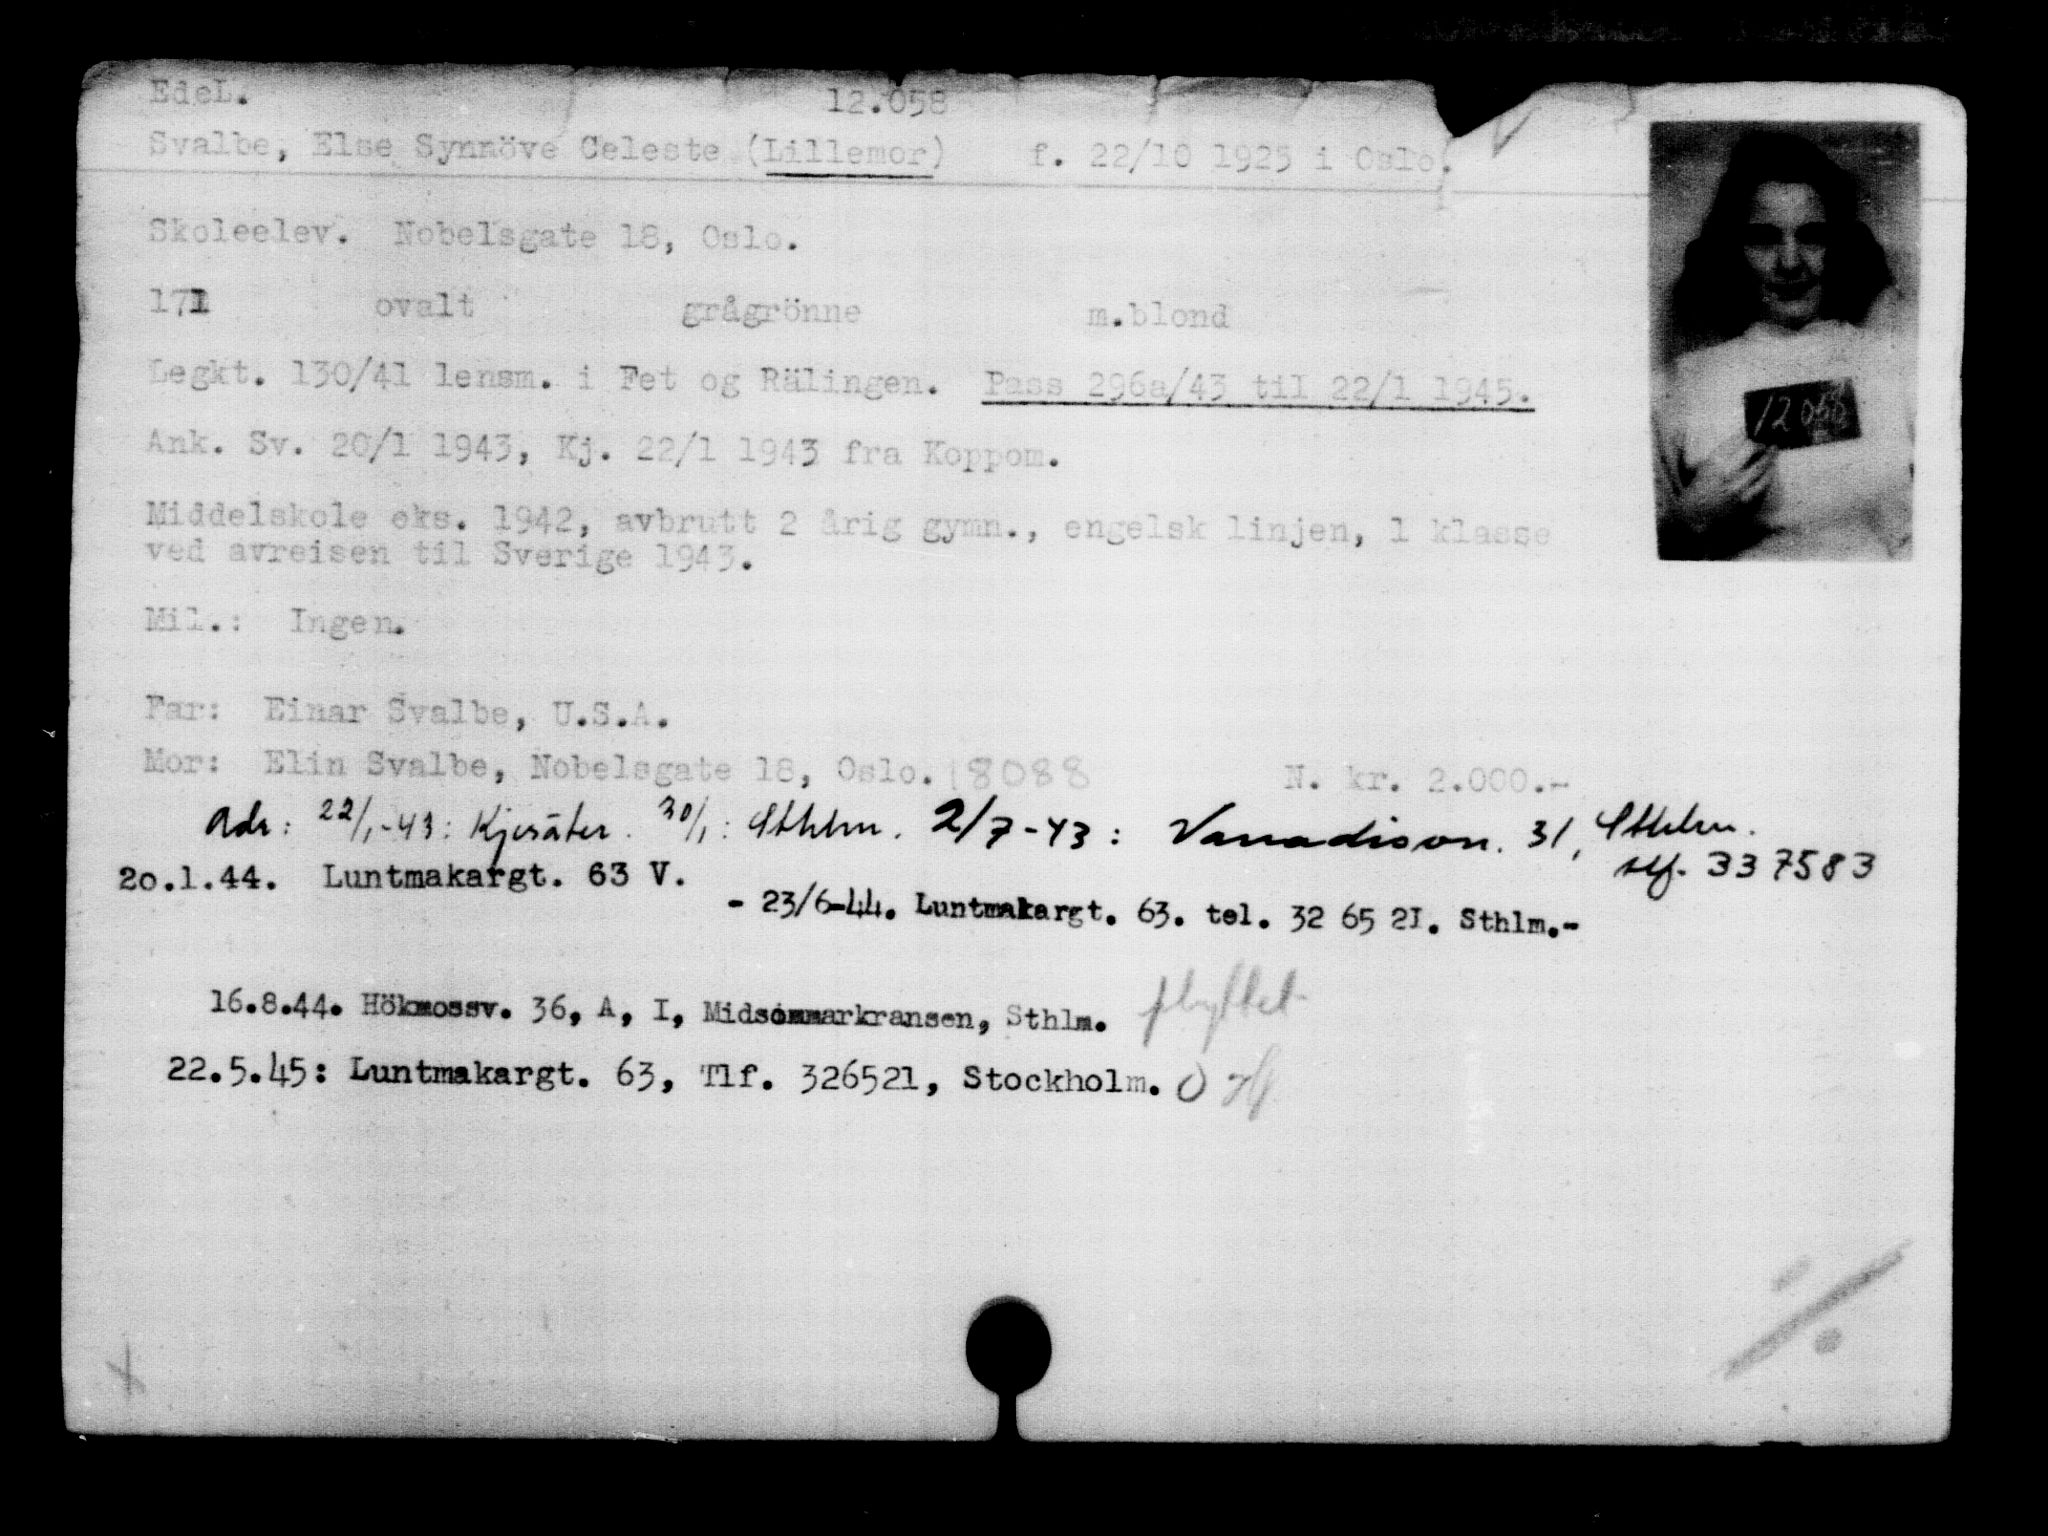 EdeL. 12.058
Svalbe, Else Synnöve Celeste (Lillemor) f. 22/10 1925 i Oslo.
Skoleelev. Nobelsgate 18, Oslo.
171 ovalt grågrönne m.blond
Legkt. 130/41 lensm. i Fet og Rälingen. Pass 296a/43 til 22/1 1945.
12058
Ank. Sv. 20/1 1943, Kj. 22/1 1943 fra Koppom.
Middelskole eks. 1942, avbrutt 2 årig gymn., engelsk linjen, 1 klasse
ved avreisen til Sverige 1943.
Mil.: Ingen.
Far: Einar Svalbe, U.S.A.
Mor: Elin Svalbe, Nobelsgate 18, Oslo. 18088 N. kr. 2.000.-
Adr: 22/1-43: Kjesäter. 30/1: Sthlm. 2/7-43: Vanadisvn. 31, Sthlm.
tlf. 337583
20.1.44. Luntmakargt. 63 V.
- 23/6-44. Luntmakargt. 63. tel. 32 65 21. Sthlm.-
16.8.44. Hökmossv. 36, A, I, Midsommarkransen, Sthlm. flyttet
22.5.45: Luntmakargt. 63, Tlf. 326521, Stockholm.